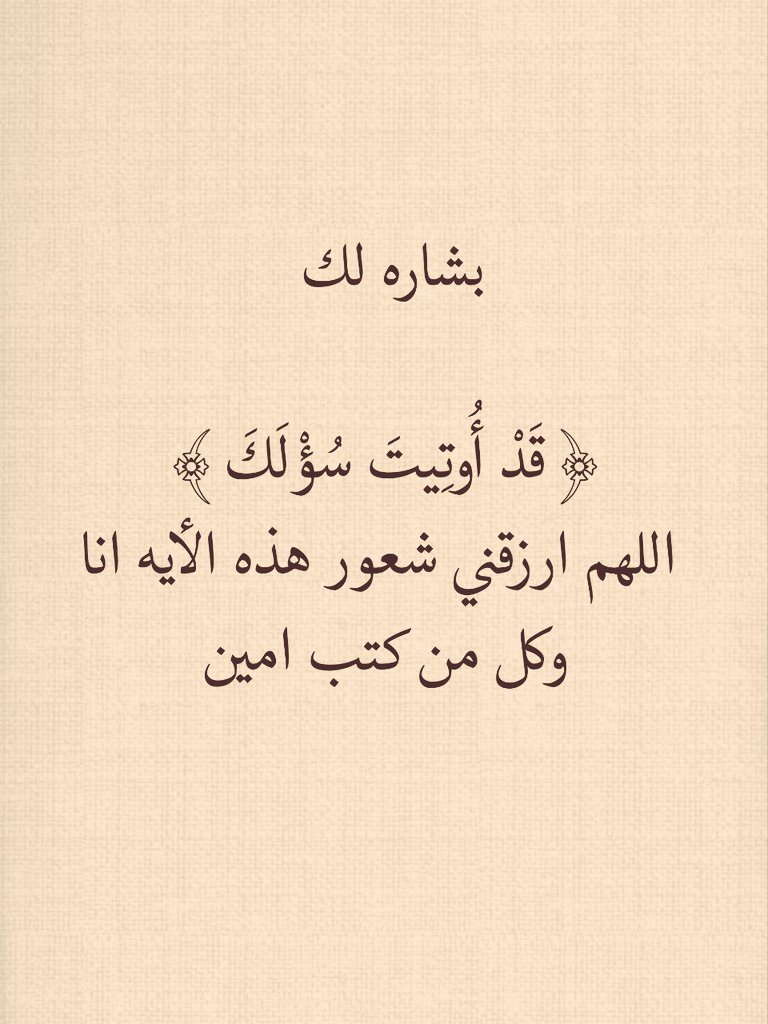 بشاره لك
﴿ قَدْ أُوتِيتَ سُؤْلَكَ ﴾
اللهم ارزقني شعور هذه الأيه انا
وكل من كتب امين